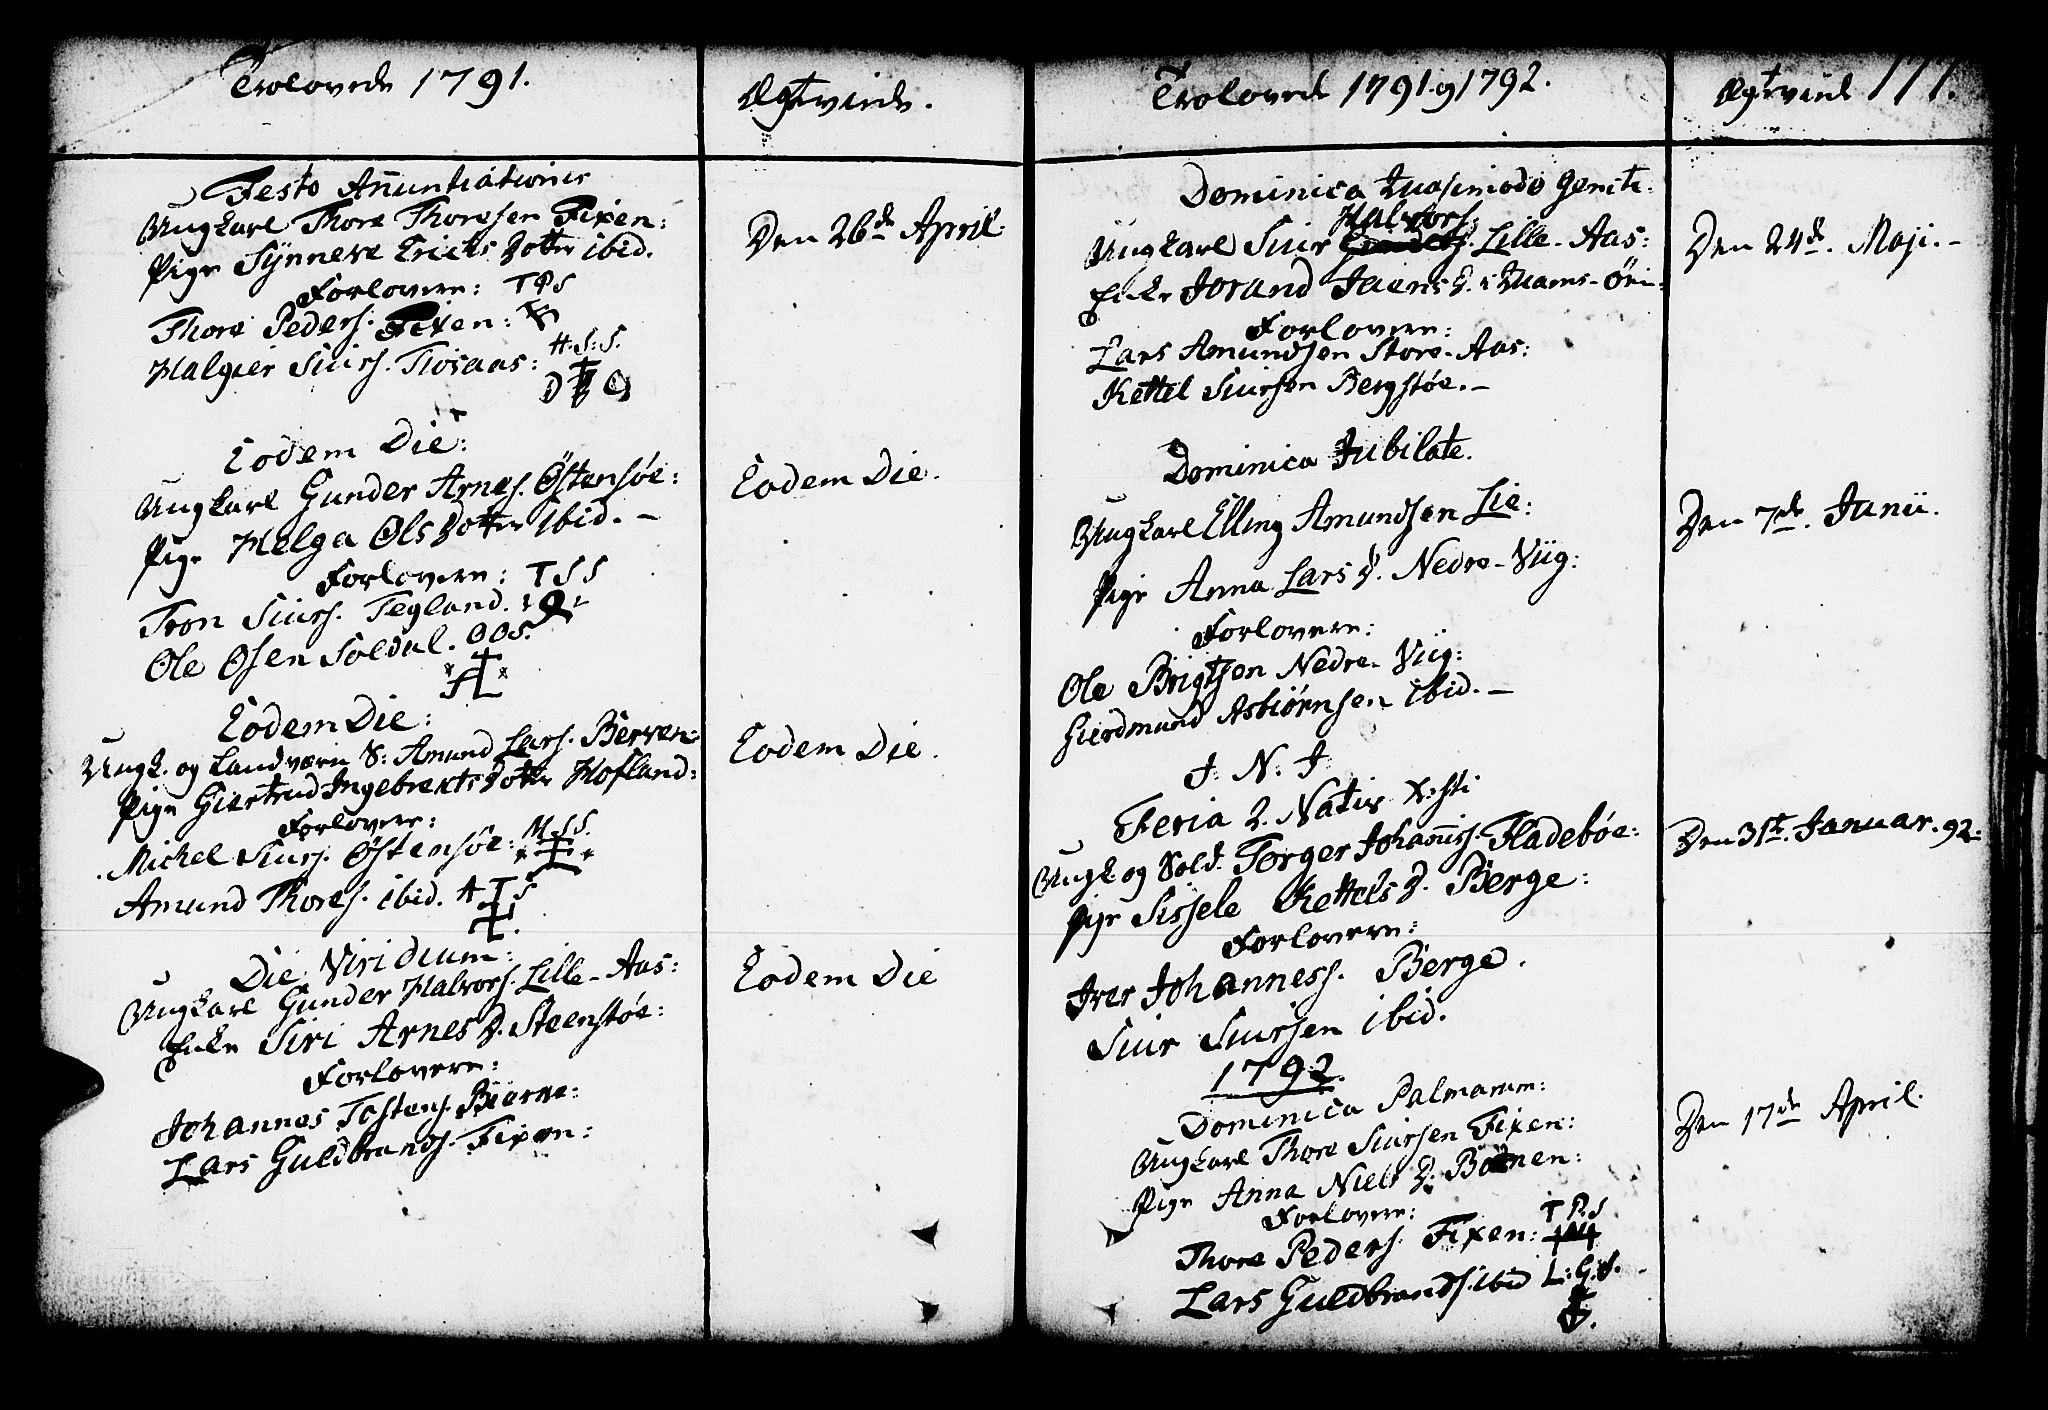 Trolovede 1791.
Ægtviede.
Festo Anuntiationis
Ungkarl Thore Thoresen Fixen:
Pige Synneve Erichs Dotter ibid.
Den 26de April.
Forlovere: T P S
Thore Peders. Fixen:
Halgier Siurs. Tiosaas: H. S: S.
Eodem Die:
Ungkarl Gunder Arnes. Østensøe:
Pige Helga Ols Dotter ibid. –
Eodem Die.
Forlovere: T S S
Tron Siurs. Tegland.
Ole Osen Soldal. O O S.
Eodem Die:
Ungk. og Landværn S: Amund Lars. Berven:
Pige Giertrud Ingebrekts Dotter Hofland:
Eodem Die.
Forlovere:
Michel Siurs. Østensøe: M. S S.
Amund Thores. ibid. A T S
Die Viridium:
Ungkarl Gunder Halvors. Lille-Aas:
Enke Siri Arnes D. Steenstøe:
Eodem Die
Forlovere:
Johannes Tostens. Biørne:
Lars Guldbrands. Fixen:
Trolovede 1791. og 1792.
Ægtviede 177.
Dominica Quasimodo Geniti:
Halvors.
Ungkarl Siur Lille-Aas:
Enke Jorand Jaens D. i Quams-Øri:
Den 24de. Maji. –
Forlovere:
Lars Amundsen Store-Aas:
Kettel Siursen Bergstøe. –
Dominica Jubilate.
Ungkarl Elling Amundsen Lie:
Pige Anna Lars D. Nedre-Viig:
Den 7de. Junii.
Forlovere:
Ole Brigtsen Nedre-Viig:
Gierdmund Asbiørnsen ibid. –
J. N. J.
Feria 2. Nativ Xsti
Ungk. og Sold. Torger Johannis. Fladebøe:
Pige Sissele Kettels D. Berge:
Den 31te. Januar. 92:
Forlovere:
Iver Johanness. Berge.
Siur Siursen ibid.
1792.
Dominica Palmarum:
Ungkarl Thore Siursen Fixen:
Pige Anna Niels D. Botnen:
Den 17de April.
Forlovere:
Thore Peders. Fixen: T P. S
Lars Guldbrands. ibid L: G. S.